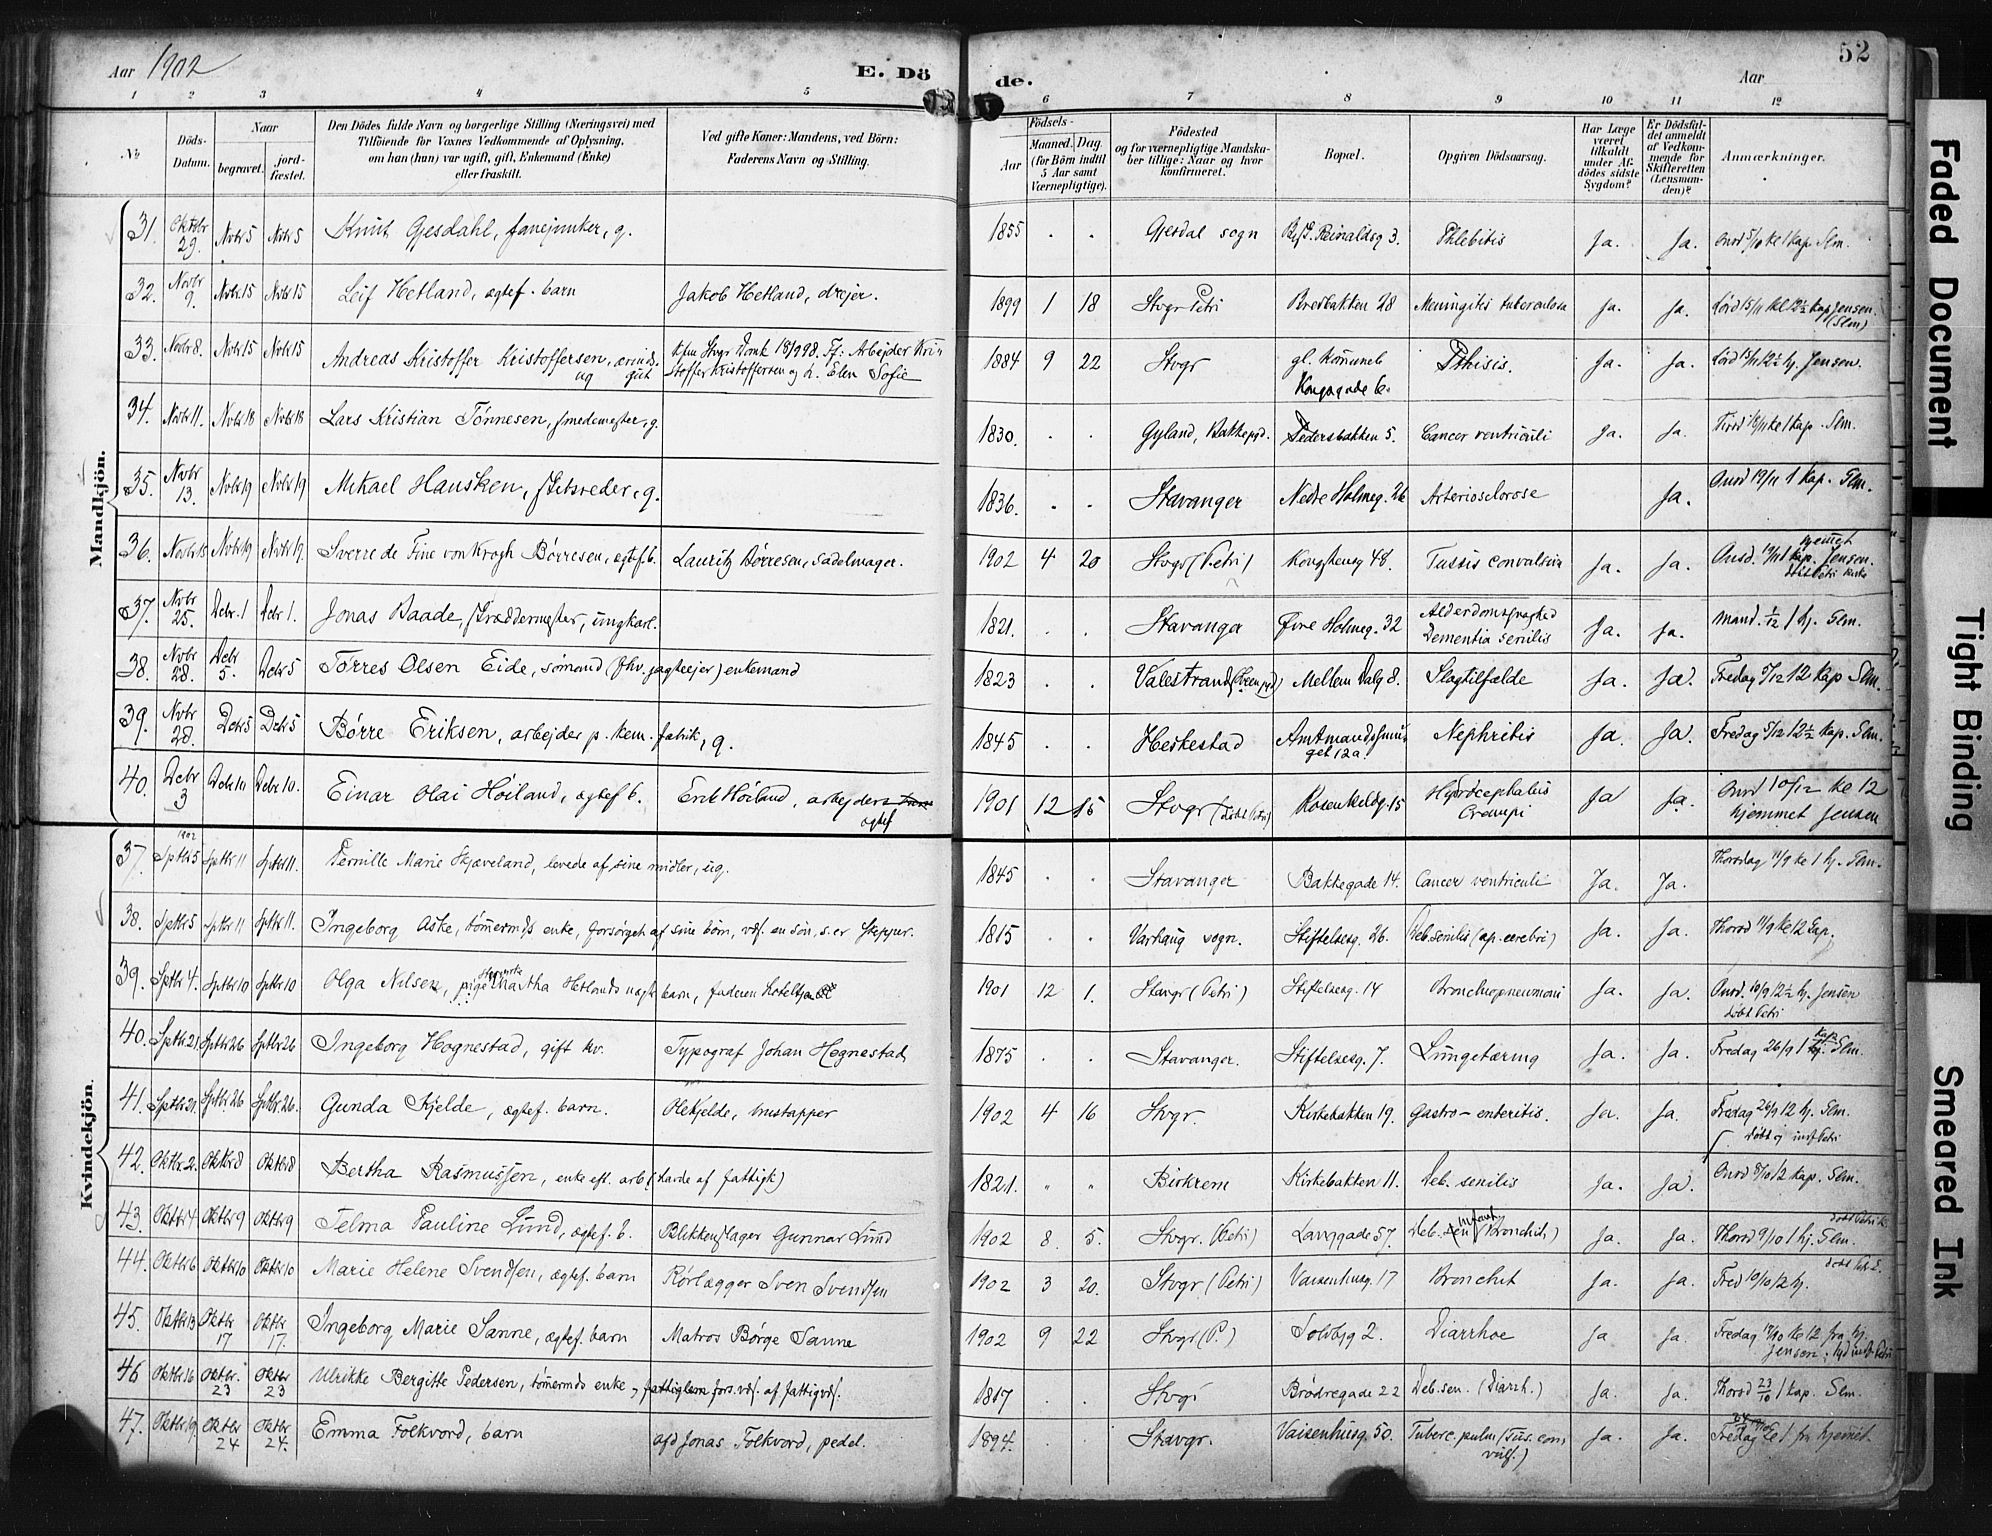 Aar 1902 E. Döde. Aar 52
1 2 3 4 5 6 7 8 9 10 11 12
No Döds-Datum. Naar begravet. jordfæstet. Den Dödes fulde Navn og borgerlige Stilling (Næringsvei) med Tilföiende for Voxnes Vedkommende af Oplysning, om han (hun) var ugift, gift, Enkemand (Enke) eller fraskilt. Ved gifte Koner: Mandens, ved Börn: Faderens Navn og Stilling. Födsels- Aar Maaned. Dag. (for Börn indtil 5 Aar samt Værnepligtige). Födested og for værnepligtige Mandskaber tillige: Naar og hvor konfirmeret. Bopæl. Opgiven Dödsaarsag. Har Læge været tilkaldt under Afdödes sidste Sygdom? Er Dödsfaldet anmeldt af Vedkommende for Skifteretten (Lensmanden)? Anmærkninger.
Mandkjön.
31. Oktbr 29. Novbr 5 Novbr 5 Knut Gjesdahl, fanejunker, g. 1855 . . Gjesdal sogn Reinaldsg 3. Phlebitis Ja. Ja. Slm.
32. Novbr 9. Novbr. 15 Novbr 15 Leif Hetland, ægtef. barn Jakob Hetland, drejer. 1899 1 18 Stvgr Petri Bredbakken 28 Meningitis tuberculosa Ja. Ja. Lörd 15/11 kl 12½ kap Jensen. (Slm)
33. Novbr 8. Novbr 15 Novbr 15 Andreas Kristoffer Kristoffersen, ug gut Kfm Stvgr Domk 18/9 98. Ff: Arbejder Kristoffer Kristoffersen og h. Elen Sofie 1884 9 22 Stvgr gl. Komuneb Kongsgade 6. Pthisis. Ja. Ja. Lörd 15/11 12½ hj. Jensen.
34. Novbr 11. Novbr 18 Novbr 18 Lars Kristian Tönnesen, smedemester, g. 1830. . . Gyland, Bakke pgd. Pedersbakken 5. Cancer ventriculi Ja. Ja. Tirsd 18/11 kl 1 kap. Slm.
35. Novbr 13. Novbr 19 Novbr 19 Mikael Hausken, skibsreder, g. 1836. . . Stavanger Nedre Holmeg. 26 Arteriosclorose Ja. Onsd 19/11 1 kap. Slm.
36. Novbr 15 Novbr 19 Novbr 19. Sverre de Fine von Krogh Börresen, ægtef. b. Lauritz Börresen, sadelmager. 1902 4 20 Stvgr (Petri) Kongstensg 48. Tussis convulsiva Ja. Ja. Onsd. 19/11 kap. hjemet Jensen.
37. Novbr 25. Decbr. 1 Decbr 1. Jonas Baade, skræddermester, ungkarl. 1821. . . Stavanger Övre Holmeg. 32 Alderdomssvaghed Dementia senilis Ja. Ja. Mand. 1/12 1 hj. Slm.
38. Novbr 28. Decbr 5. Decbr 5 Törres Olsen Eide, sömand (fhv. jagteejer) enkemand 1823 . . Valestrand (Sveen pgd) Mellem Dalg 8. Slagtilfælde Ja. Ja. Fredag 5/12 12 kap Slm.
39. Novbr 28. Decbr 5 Decbr 5 Börre Eriksen, arbejder p. kem. fabrik, g. 1845 . . Heskestad Amtmandssmuget 12a. Nephritis Ja. Ja. Fredag 5/12 12½ kap. Slm.
40. Decbr 3 Decbr 10 Decbr 10. Einar Olai Höiland, ægtef b. Erik Höiland, arbejder ægtef 1901 12 15 Stvgr (döbt Petri) Rosenkildeg. 15 Hydrocephalus Crampi Ja Ja. Onsd 10/12 kl 12 hjemmet Jensen
Kvindekjön.
37. 1902 Sptbr 5 Sptbr 11 Sptbr 11. Pernille Marie Skjæveland, levede af sine midler, ug. 1845 . . Stavanger Bakkegade 14. Cancer ventriculi Ja. Ja. Thorsdag 11/9 kl 1 hj. Slm.
38. Sptbr 5 Sptbr 11 Sptbr 11. Ingeborg Aske, tömermds enke, forsörget af sine börn, væs. en sön, s. er skipper. 1815 . . Varhaug sogn. Stiftelsesg. 26. Deb. senilis (ap. cerebri) Ja. Ja. Thorsd 11/9 kl 12 kap.
39. Sptbr 4. Sptbr 10 Sptbr 10 Olga Nilsen, pige Martha Hetlands uægte barn, faderen 1901 12 1. Stavgr (Petri) Stiftelsesg. 14 Bronchopneumoni Ja. Ja. Onsd. 10/9 12½ hj. Jensen döbt Petri
40. Sptbr. 21. Sptbr 26 Sptbr 26 Ingeborg Hognestad, gift kv. Typograf Johan Hognestad, 1875 . . Stavanger. Stiftelsesg. 7. Lungetæring Ja. Ja. Fredag 26/9 1 kap. Slm.
41. Sptbr 21. Sptbr 26 Sptbr. 26. Gunda Kjelde, ægtef. barn. Ole Kjelde, brustapper 1902 4 16 Stvgr. Kirkebakken 19. Gastro-enteritis. Ja. Ja. Fredag 26/9 12 hj. Slm. döbt ej indf Petri
42. Oktbr. 2. Oktbr 8 Oktbr 8 Bertha Rasmussen, enke eft. arb (havde af fattigk) 1821. " " Birkrem Kirkebakken 11. Deb. senilis Ja. Ja. Onsd 8/10 12 kap. Slm.
43. Oktbr 4 Oktbr 9 Oktbr 9 Telma Pauline Lund, ægtef. b. Blikkenslager Gunnar Lund 1902 8. 5. Stvgr. (Petri) Langgade 57. Deb. infant (Bronchit.) Ja. Ja. Thorsd 9/10 1 hj. Slm. döbt Petri k.
44. Oktbr 6 Oktbr 10 Oktbr 10 Marie Helene Svendsen, ægtef. barn Rörlægger Sven Svendsen 1902 3 20. Stvgr (Petri) Vaisenhusg. 17 Bronchit Ja. Ja. Fred 10/10 12 hj.
45. Oktbr 13 Oktbr 17 Oktbr 17. Ingeborg Marie Sanne, ægtef. barn Matros Börge Sanne 1902 9 22 Stvgr (P.) Solvbjg 2. Diarrhoe Ja Ja. Fredag 17/10 kl 12 fra hj. Jensen
46 Oktbr 16 Oktbr. 23 Oktbr 23 Ulrikke Bergitte Pedersen, tömermds enke, fattiglem fors. væs. af fattigvæs. 1817 . . Stvgr Brödregade 22 Deb. sen. (Diarrh.) Ja. Ja. Thorsd 23/10 1 kap. Slm.
47. Oktbr 19 Oktbr 24 Oktbr 24. Emma Folkvord, barn afd Jonas Folkvord, pedel. 1894. . . Stavgr. Vaisenhusg. 50. Tuberc. pulm (Tus. convuls.) Ja. Ja. Fredag kl 1 fr hjemet.
Faded Document
Tight Binding
Smeared Ink